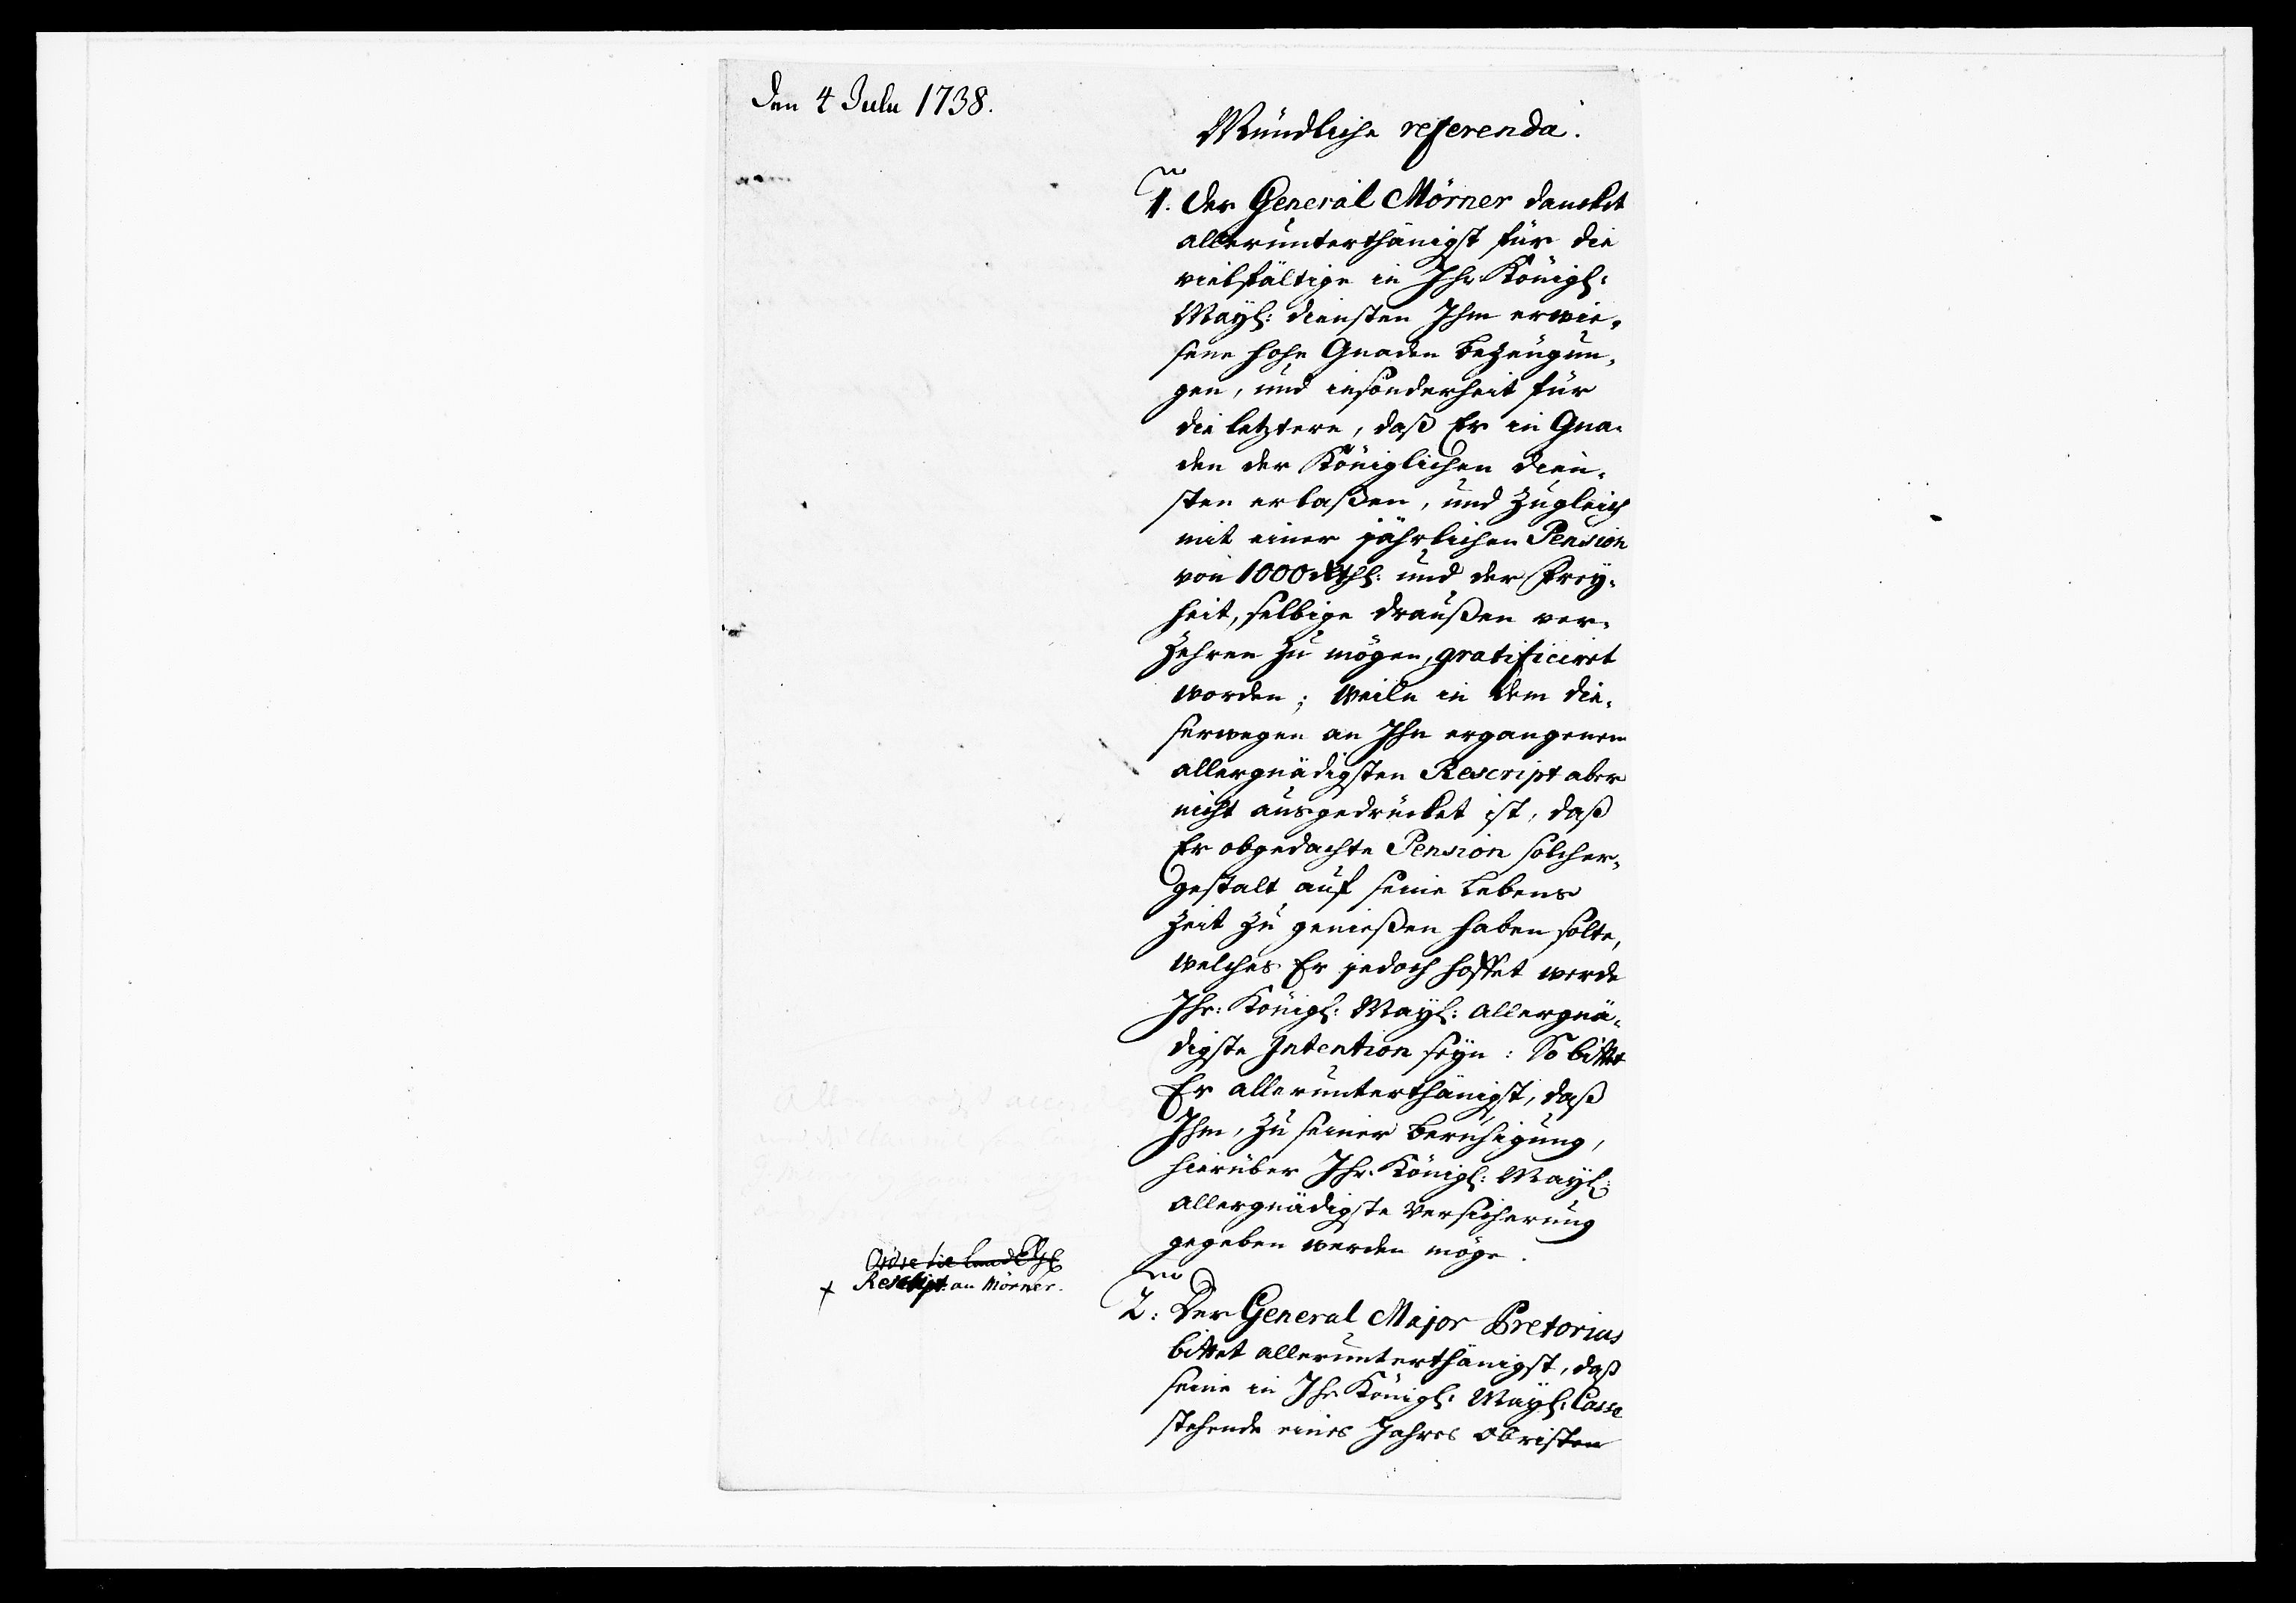 Den 4 Julii 1738.
Mündliche referenda.
1. Der General Mörner dancket
allerunterthänigst für die
vielfältige in Ihr Königl:
Mayl: diensten Ihm erwie-
sene hohe Gnaden bezeugun-
gen, und insonderheit für
die letztere, daß Er in Gna-
den der Königlichen dien-
sten erlaßen, und zugleich
mit einer jährlichen Pension
von 1000 Rthl: und der Frey-
heit, selbige draußen ver-
zehren zu mögen, gratificiret
worden; Weiln in dem die-
serwegen an Ihn ergangenen
allergnädigsten Rescript aber
nicht ausgedrücket ist, daß
Er obgedachte Pension solcher-
gestalt auf seine Lebens
Zeit zu genießen haben solte,
welches Er jedoch hoffet werde
Ihr: Königl: Mayl: allergnä-
digste Intention seyn: So bittet
Er allerunterthänigst, daß
Ihm, zu seiner beruhigung,
hierüber Ihr Königl: Mayl:
allergnädigste Versicherung
gegeben werden möge.
Rescript an Mörner.
2: Der General Major Pretorius
bittet allerunterthänigst, daß
seine in Ihr Königl: Mayl: Casse
stehende eines Jahres Obristen